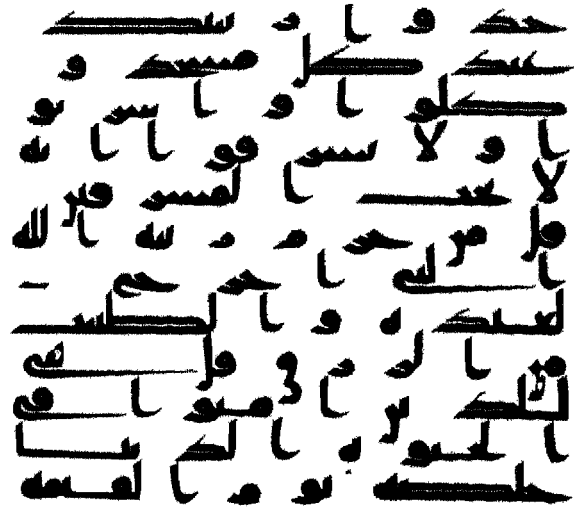 خذوا زينتكم
عند كل مسجد و
كلوا واشربو
ا ولا تسرفوا انه
لا يحب المسرفين
قل من حرم زينه الله
التي اخرج
لعباده والطيبت
من الرزق قل هي
للذين امنوا في
الحيوه الدنيا
خالصه يوم القيمه